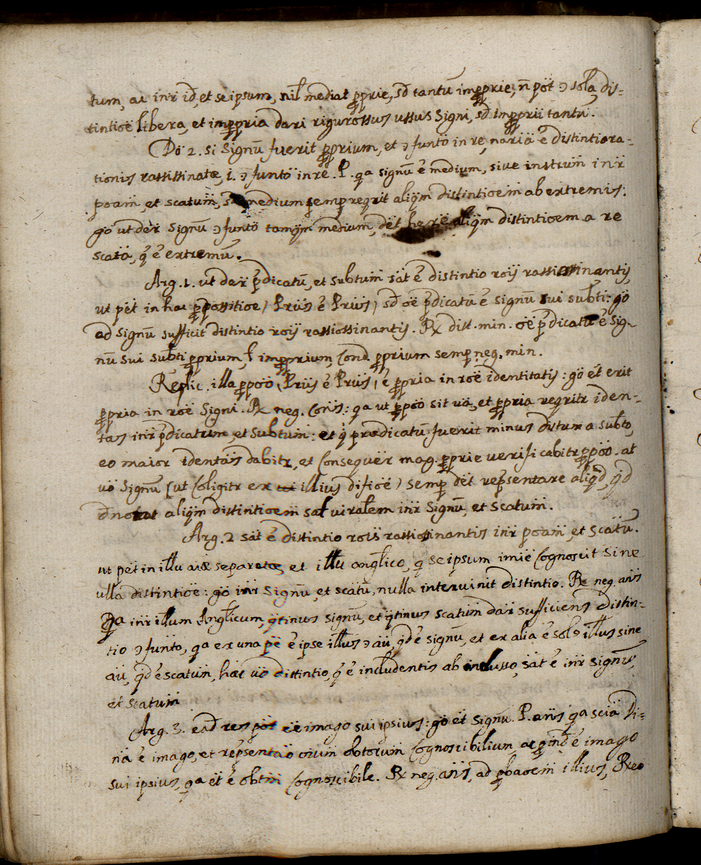 tum, ac inr̄ id, et se ipsum, nil mediat p̱prie, sd̄ tantū imp̱prie; n̄ pōt ɔ sola dis-
tintioē libera, et imp̱pria dari rigurossus ussus signi, sd̄ imp̱rii tantū.
Dō 2. si signū fuerit p̱prium, et ɔjunto in re, naria ē distintio ra-
tionis rassissinatæ, i. ɔjunto in re. P. qa signū ē medium, sive instrum̄ inr̄
poam̄, et scatum, medium semp reqrit aliqm̄ distintioem̄ ab extremis.
go ut der signū ɔjuntō tamqm̄ medium, dēt aliqm̄ distintioem a re
scatā, q̄ ē extremū.
Arg. 1. ut dar p̄dicatū, et subtum̄ sat ē distintio rōis rassiossinantis,
ut pēt in hac p̱possitioe, Priis ē Priis, sd̄ oē p̄dicatū ē signū sui subti: go
ad signū sufficit distintio rōis rassiossinantis. R̷ dist. min. oē p̄dicatū ē sig-
nū sui subti p̱prium, l imp̱prium, Cond. p̱prium semp, neg. min.
Replic. illa p̱poō, Priis ē Priis, ē p̱pria in roē identitatis: go ēt erit
p̱pria in roē signi. R̷ neg. Conis: qa ut p̱poō sit va, et p̱pria reqritr iden-
tas inr̄ p̄dicatum et subtum̄: et q̄ prædicatū fuerit minus distum a subto,
eo maior identas dabitr, et Consequer mag. p̱prie verificabitr p̱poō. at
vō signū (ut Coligitr ex illius difioē) semp dēt repsentare aliqd, qd
dnotat aliqm̄ distintioem̄ sal viralem inr̄ signū, et scatum.
Arg. 2 sat ē distintio rois rassiossinantis inr̄ poam̄ et scatū.
ut pēt in illu aiæ separatæ, et illu anglico, q seipsum imiē Cognoscit sine
ulla distintioe: go inr̄ signū, et scatū, nulla intervinit distintio. R̷ neg. ans
Qa inr̄ illum Anglicum, qtinus signū, et qtinus scatum dar sufficiens distin-
tio ɔjunto, qa ex una pē ē ipse illus ɔ aū, qd ē signū, et ex alia ē sols illus sine
aū, qd ē scatum, hæc vō distintio, q̄ ē includentis ab inclusso, sat ē inr̄ signū,
et scatum
Arg. 3. eadē res pōt eē imago sui ipsius: go ēt signū. P. ans qa scia di-
na ē imago, et repsentaō oium obtorum Cognoscibilium at ē imago
sui ipsius, qa ēt ē obtm̄ Cognoscibile. R̷ neg. ans, ad p̱baoem̄ illius, R̷eo